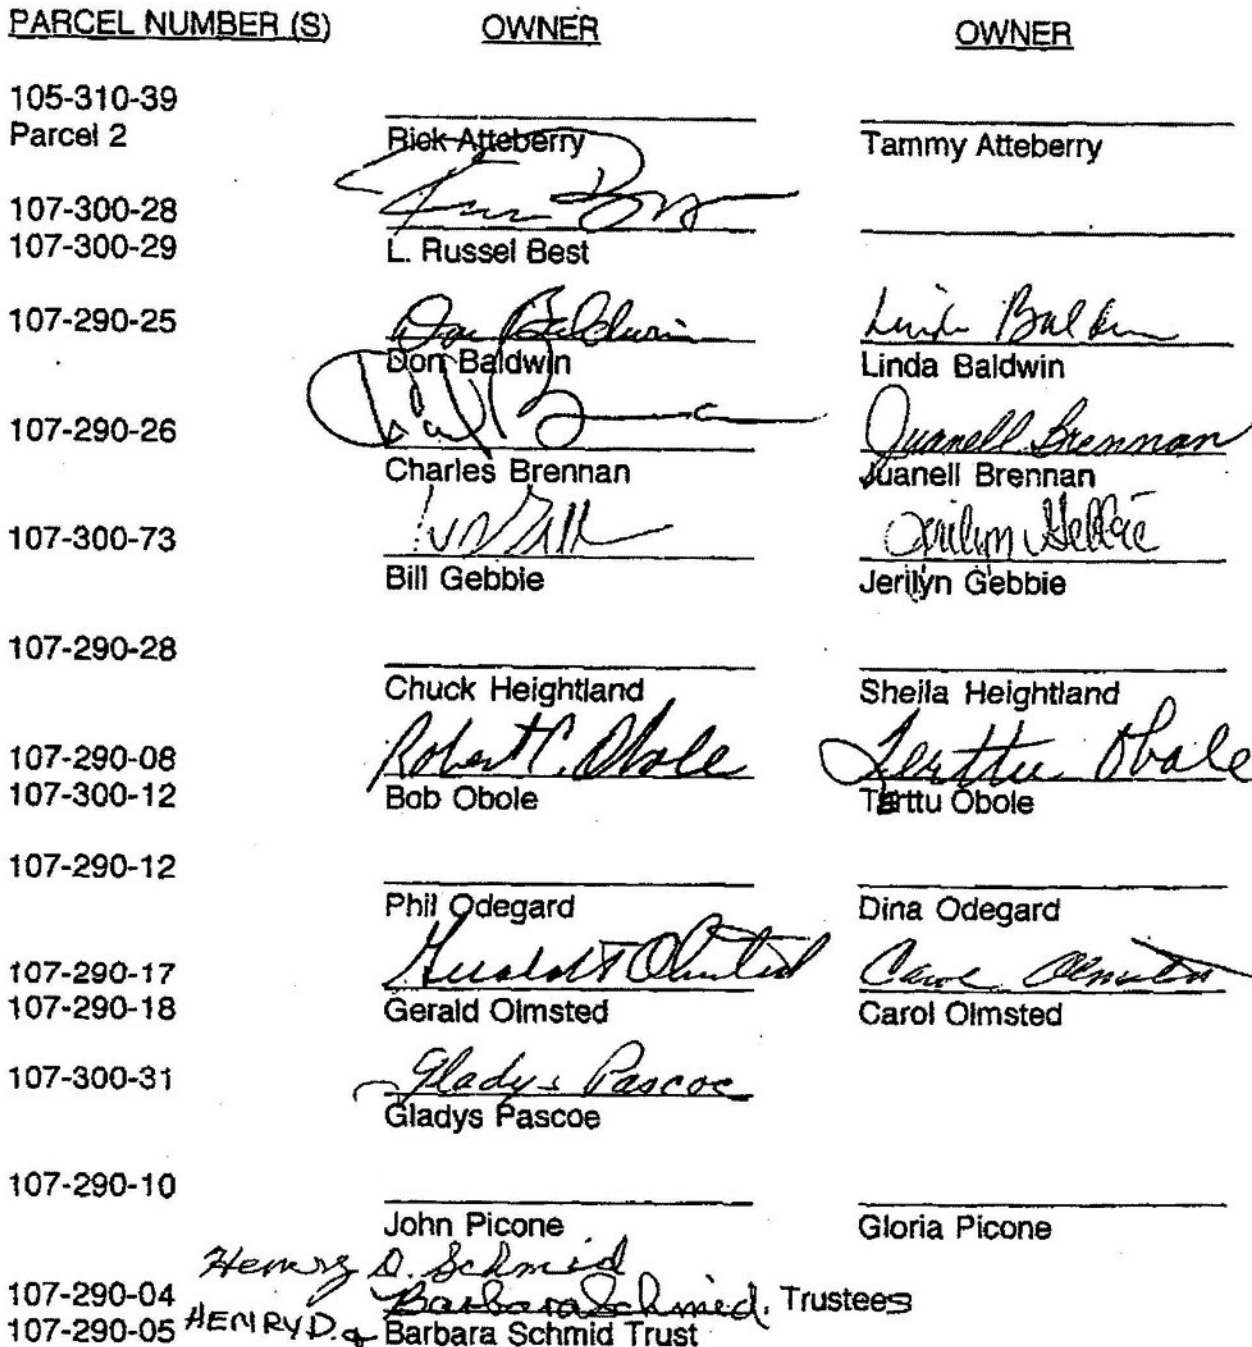 PARCEL NUMBER (S) OWNER OWNER
105-310-39
Parcel 2 Rick Atteberry Tammy Atteberry
107-300-28
107-300-29 L. Russel Best
107-290-25 Don Baldwin Linda Baldwin
Don Baldwin Linda Baldwin
107-290-26 Juanell Brennan
Charles Brennan Juanell Brennan
107-300-73 Jerilyn Gebbie
Bill Gebbie Jerilyn Gebbie
107-290-28
Chuck Heightland Sheila Heightland
107-290-08 Robert C. Obole Terttu Obole
107-300-12 Bob Obole Terttu Obole
107-290-12
Phil Odegard Dina Odegard
107-290-17 Gerald Olmsted Carol Olmsted
107-290-18 Gerald Olmsted Carol Olmsted
107-300-31 Gladys Pascoe
Gladys Pascoe
107-290-10
John Picone Gloria Picone
Henry D. Schmid
107-290-04 Barbara Schmid, Trustees
107-290-05 HENRY D. & Barbara Schmid Trust